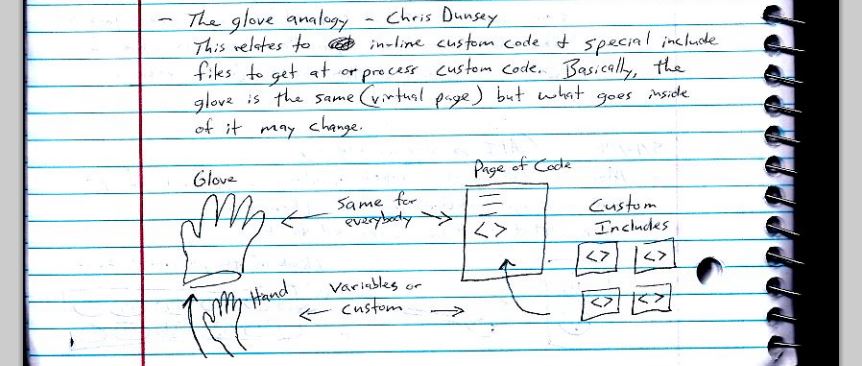 - The glove analogy - Chris Dunsey
This relates to in-line custom code & special include
files to get at or process custom code. Basically, the
glove is the same (virtual page) but what goes inside
of it may change.
Glove
Same for
everybody
Page of Code
< >
Custom
Includes
< >
< >
< >
< >
Hand
Variables or
custom